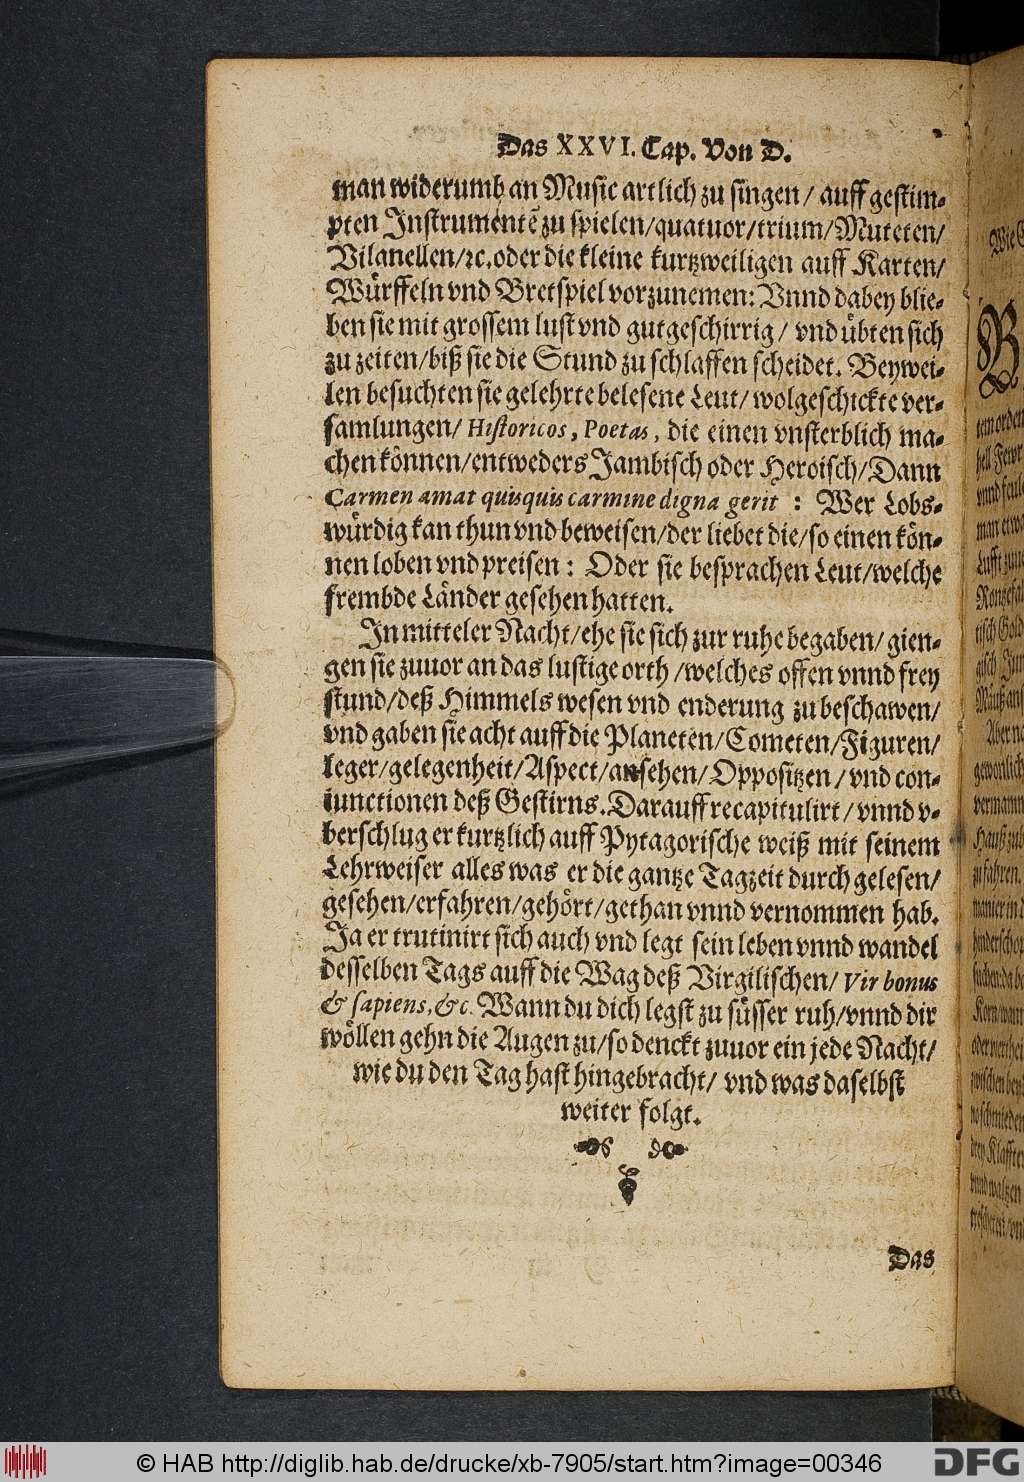 Das XXVI. Cap. Von D.
man widerumb an Music artlich zu singen / auff gestim-
pten Instrumentē zu spielen/quatuor/trium/Muteten/
Vilanellen/ꝛc. oder die kleine kurtzweiligen auff Karten/
Würffeln vnd Bretspiel vorzunemen: Vnnd dabey blie-
ben sie mit grossem lust vnd gutgeschirrig / vnd übten sich
zu zeiten/biß sie die Stund zu schlaffen scheidet. Beywei-
len besuchten sie gelehrte belesene Leut/ wolgeschickte ver-
samlungen/ Historicos, Poetas, die einen vnsterblich ma-
chen können/entweders Jambisch oder Heroisch/Dann
Carmen amat quisquis carmine digna gerit : Wer Lobs-
würdig kan thun vnd beweisen/der liebet die/so einen kön-
nen loben vnd preisen : Oder sie besprachen Leut/welche
frembde Länder gesehen hatten.
In mitteler Nacht/ehe sie sich zur ruhe begaben/ gien-
gen sie zuuor an das lustige orth /welches offen vnnd frey
stund/deß Himmels wesen vnd enderung zu beschawen/
vnd gaben sie acht auff die Planeten/Cometen/Figuren/
leger/gelegenheit/Aspect/ansehen/Oppositzen / vnd con-
iunctionen deß Gestirns. Darauff recapitulirt / vnnd v-
berschlug er kurtzlich auff Pytagorische weiß mit seinem
Lehrweiser alles was er die gantze Tagzeit durch gelesen/
gesehen/erfahren/gehört/gethan vnnd vernommen hab.
Ja er trutinirt sich auch vnd legt sein leben vnnd wandel
desselben Tags auff die Wag deß Virgilischen/ Vir bonus
& sapiens, &c. Wann du dich legst zu süsser ruh/vnnd dir
wöllen gehn die Augen zu/so denckt zuuor ein jede Nacht/
wie du den Tag hast hingebracht/ vnd was daselbst
weiter folgt.
Das
© HAB http://diglib.hab.de/drucke/xb-7905/start.htm?image=00346
DFG